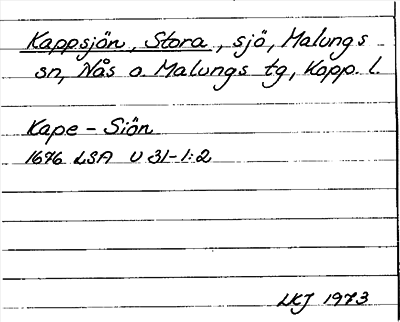 Kappsjön, Stora, sjö, Malungs
sn, Nås o. Malungs tg, Kopp. l.
Kape - Siön
1696 LSA U 31-1:2
LKJ 1973